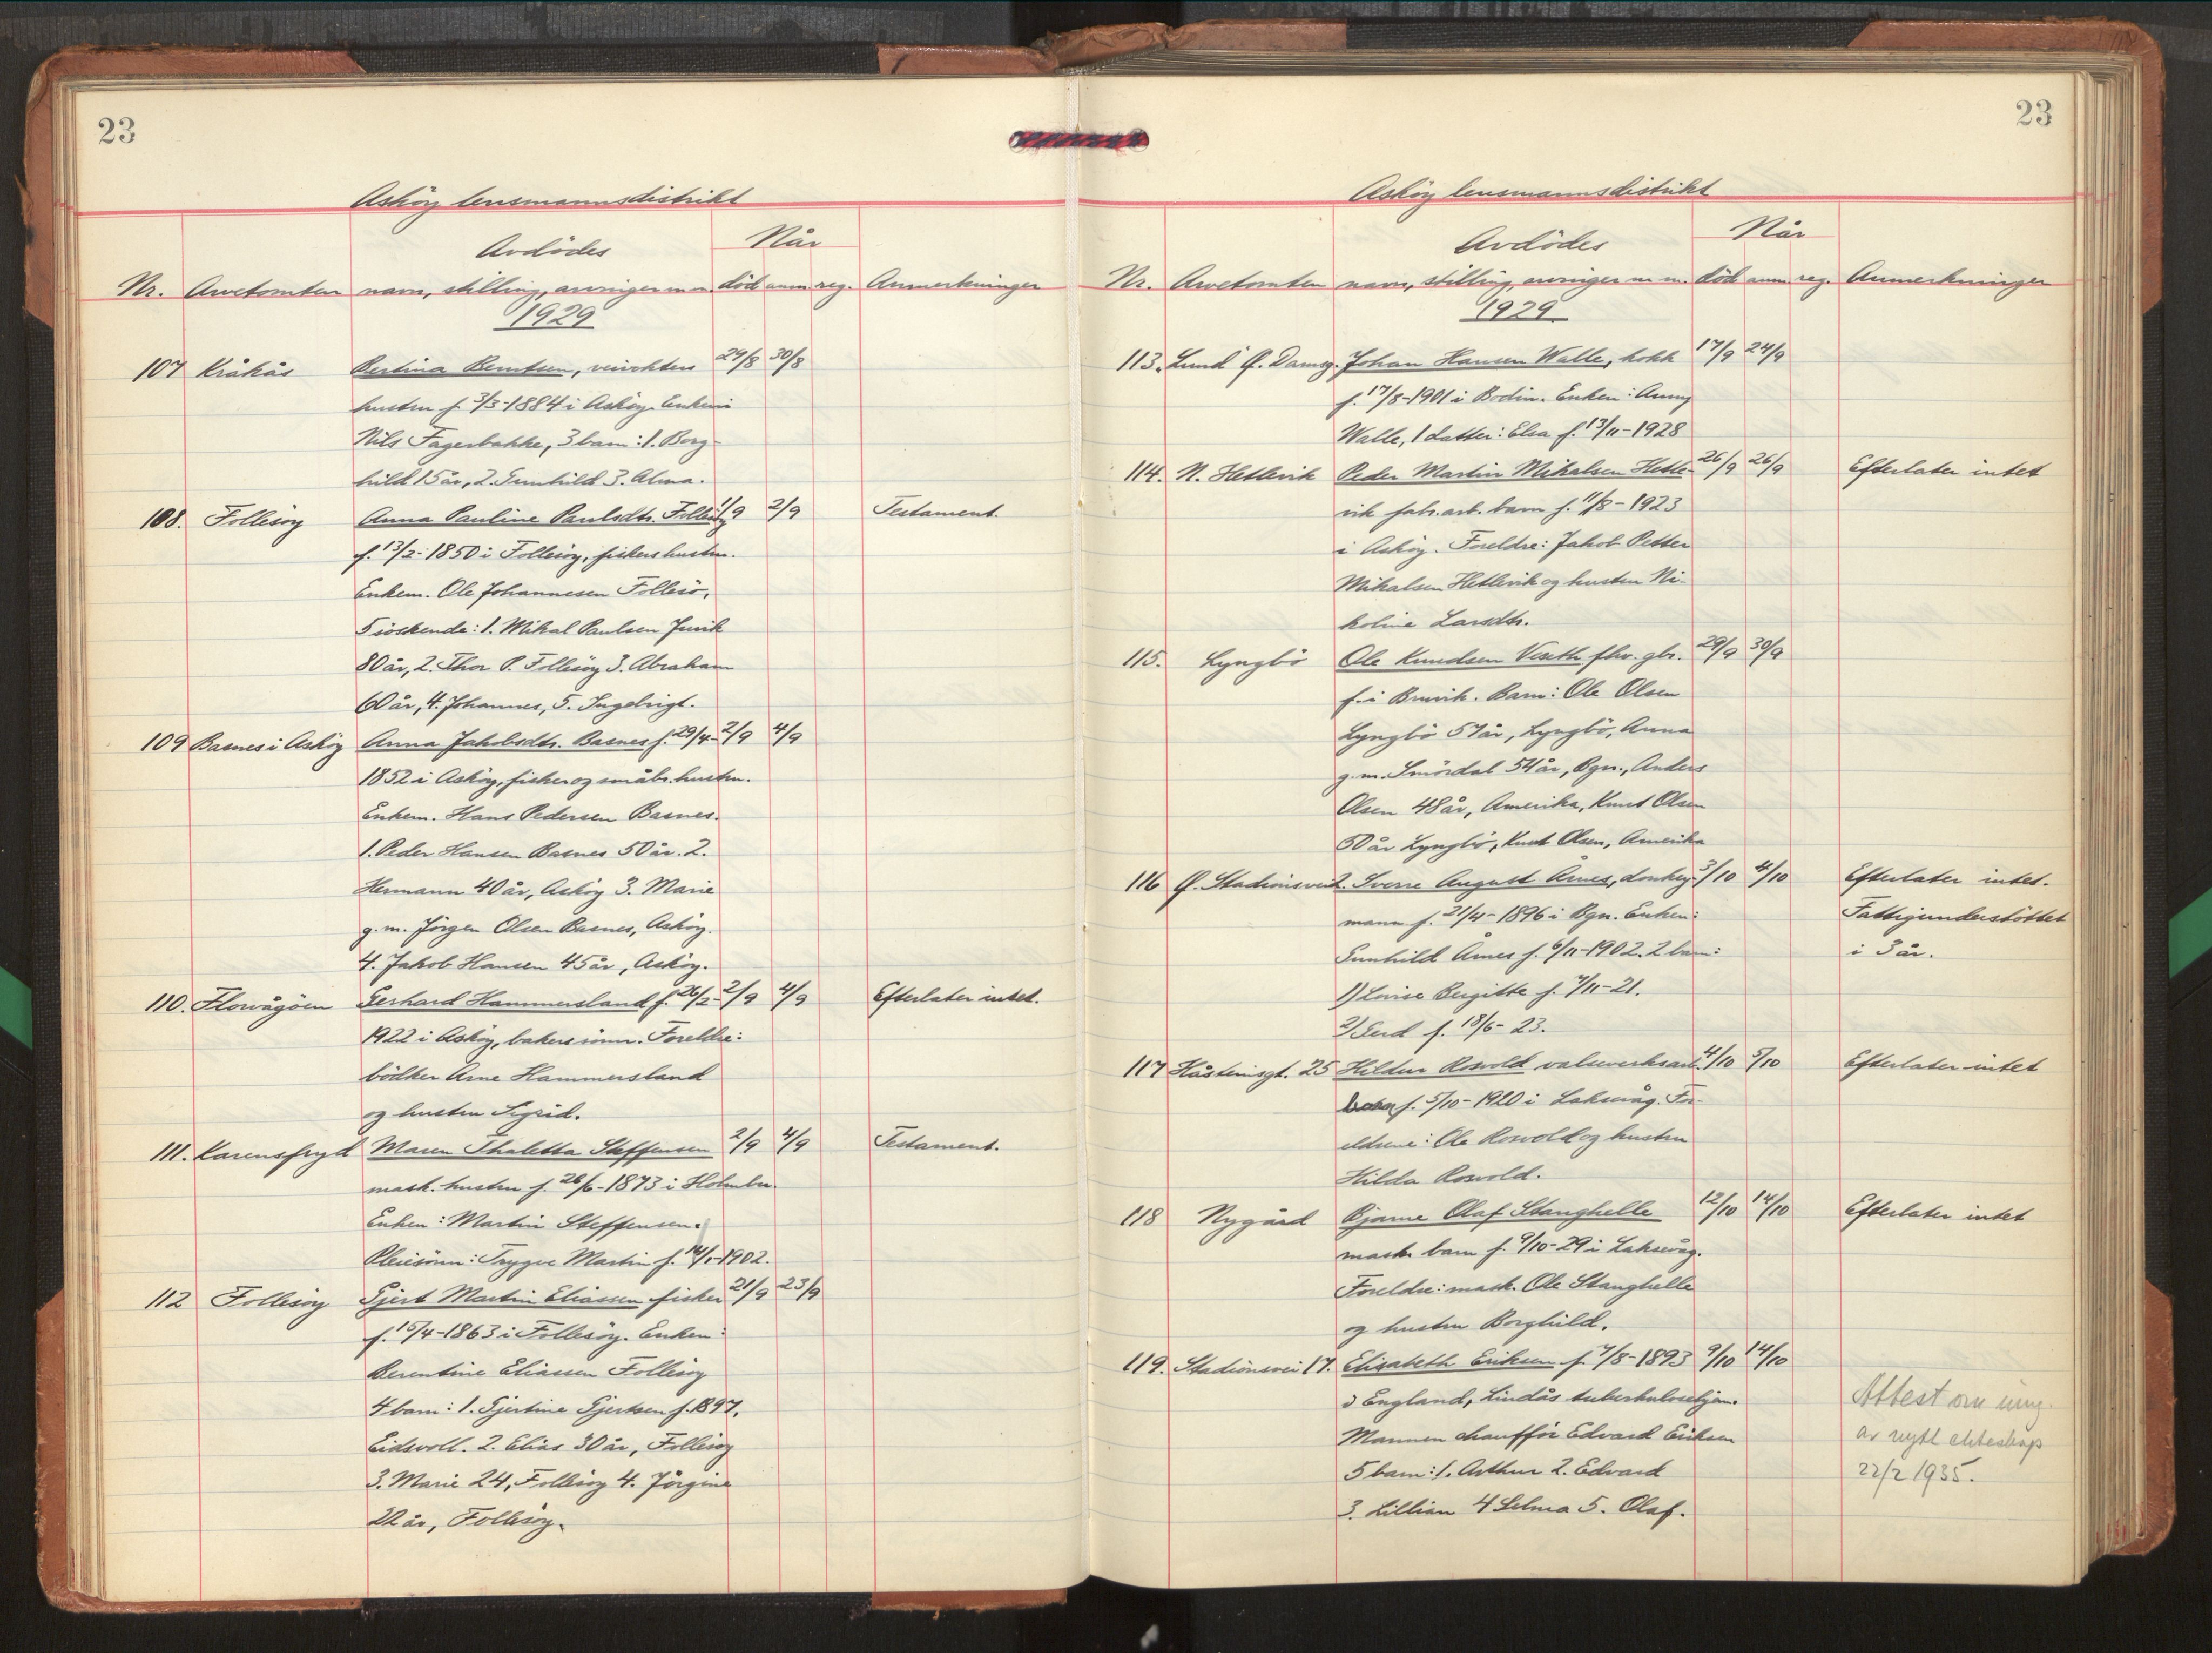 23
Asköy lensmannsdistrikt
Avdödes
Når
Nr. Arvetomten navn, stilling, arvinger m.m. död anm. reg. Anmerkninger
1929
107 Kråkås Bertina Berntsen, 29/8 30/8
hustru f. 3/3-1884 i Asköy. Enkem.
Nils Fagerbakke, 3 barn: 1. Borg-
hild 15 år, 2. Gunhild 3. Alma.
108. Follesöy Anna Pauline Paulsdtr. Follesöy 1/9 2/9 Testament.
f. 13/2-1850 i Follesöy, fiskers hustru.
Enkem. Ole Johannesen Follesö,
5 söskende: 1. Mikal Paulsen Juvik
80 år, 2. Thor P. Follesöy 3. Abraham
60 år, 4. Johannes, 5. Ingebrigt.
109 Basnes i Asköy Anna Jakobsdtr. Basnes f. 29/4- 2/9 4/9
1852 i Asköy, fisker og småbr. hustru.
Enkem. Hans Pedersen Basnes.
1. Peder Hansen Basnes 50 år. 2.
Hermann 40 år, Asköy 3. Marie
g.m. Jörgen Olsen Basnes, Asköy.
4. Jakob Hansen 45 år, Asköy.
110. Florvågöen Gerhard Hammersland f. 26/2- 2/9 4/9 Efterlater intet.
1922 i Asköy, bakers sönn. Foreldre:
bödker Arne Hammersland
og hustru Sigrid.
111. Karensfryd Maren Thaletta Steffensen 2/9 4/9 Testament.
mask. hustru f. 26/6-1873 i Holmbu.
Enkem: Martin Steffensen.
Pleiesönn: Trygve Martin f. 14/1-1902.
112 Follesöy Gjert Martin Eliassen fisker 21/9 23/9
f. 15/4-1863 i Follesöy. Enken:
Berentine Eliassen Follesöy
4 barn: 1. Gjertine Gjertsen f. 1897,
Eidsvoll. 2. Elias 30 år, Follesöy
3. Marie 24, Follesöy 4. Jörgine
22 år, Follesöy.
23
Asköy lensmannsdistrikt
Avdödes
Når
Nr. Arvetomten navn, stilling, arvinger m.m. död anm. reg. Anmerkninger
1929
113. Lund Ö. Damsg. Johan Hansen Walle, kokk 17/9 24/9
f. 17/8-1901 i Bodin. Enken: Anny
Walle, 1 datter: Elsa f. 13/11-1928
114. N. Hetlevik Peder Martin Mikalsen Hetle- 26/9 26/9 Efterlater intet
vik fabr.arb. barn f. 11/8-1923
i Asköy. Foreldre: Jakob Petter
Mikalsen Hetlevik og hustru Ni-
koline Larsdtr.
115. Lyngbö Ole Knudsen Veseth fhv. gbr. 29/9 30/9
f. i Bruvik. Barn: Ole Olsen
Lyngbö 57 år, Lyngbö, Anna
g.m. Smördal 54 år, Bgn., Anders
Olsen 48 år, Amerika, Knut Olsen
50 år Lyngbö, Knut Olsen, Amerika
116 Ö. Stadionsvei 2. Sverre August Årnes, donkey- 3/10 4/10 Efterlater intet.
mann f. 21/4-1896 i Bgn. Enken: Fattigunderstöttet
Gunhild Årnes f. 6/11-1902. 2 barn: i 3 år.
1) Lovise Bergitte f. 7/11-21.
2) Gerd f. 18/6-23.
117 Håsteinsgt. 25 Hildur Rosvold valseverksarb. 4/10 5/10 Efterlater intet
barn f. 5/10-1920 i Laksevåg. For-
eldrene: Ole Rosvold og hustru
Hilda Rosvold.
118 Nygård Bjarne Olaf Stanghelle 12/10 14/10 Efterlater intet
mask. barn f. 9/10-29 i Laksevåg.
Foreldre: mask. Ole Stanghelle
og hustru Borghild.
119. Stadionsvei 17. Elisabeth Eriksen f. 7/8-1893 9/10 14/10
i England, Lindås tuberkulosehjem.
Mannen chaufför Edvard Eriksen
5 barn: 1. Arthur 2. Edvard
3. Lillian 4 Selma 5. Olaf.
Attest om inng.
av nytt ekteskap
22/2 1935.